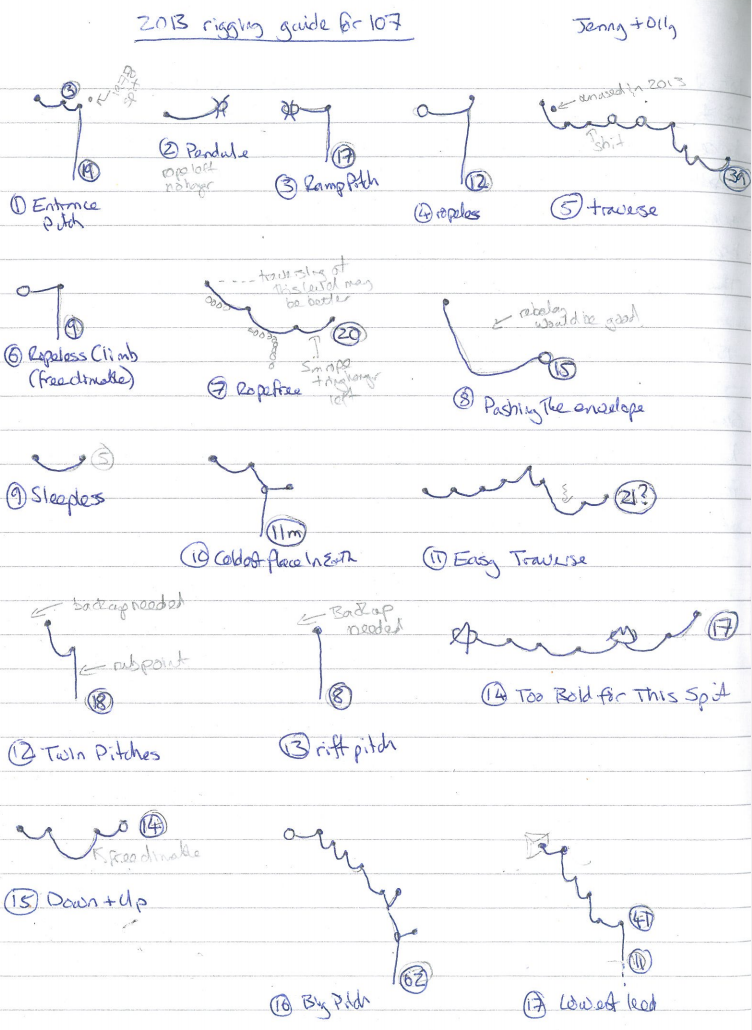 2013 rigging guide for 107
Jenny + Olly
3
19
① Entrance
Pitch
② Pendule
rope left
no hanger
17
③ Ramp Pitch
12
④ ropeless
unused in 2013
shit
39
⑤ traverse
9
⑥ Ropeless Climb
(freeclimable)
traversing at
this level may
be better
20
5m rope
+ hanger
left
⑦ Ropefree
rebelay
would be good
15
⑧ Pushing The envelope
5
⑨ Sleepless
11m
⑩ Coldest Place In Earth
21?
⑪ Easy Traverse
backup needed
rubpoint
18
⑫ Twin Pitches
Backup
needed
8
⑬ rift pitch
17
⑭ Too Bold for This Spit
14
freeclimable
⑮ Down + Up
62
⑯ Big Pitch
47
10
⑰ Lowest lead